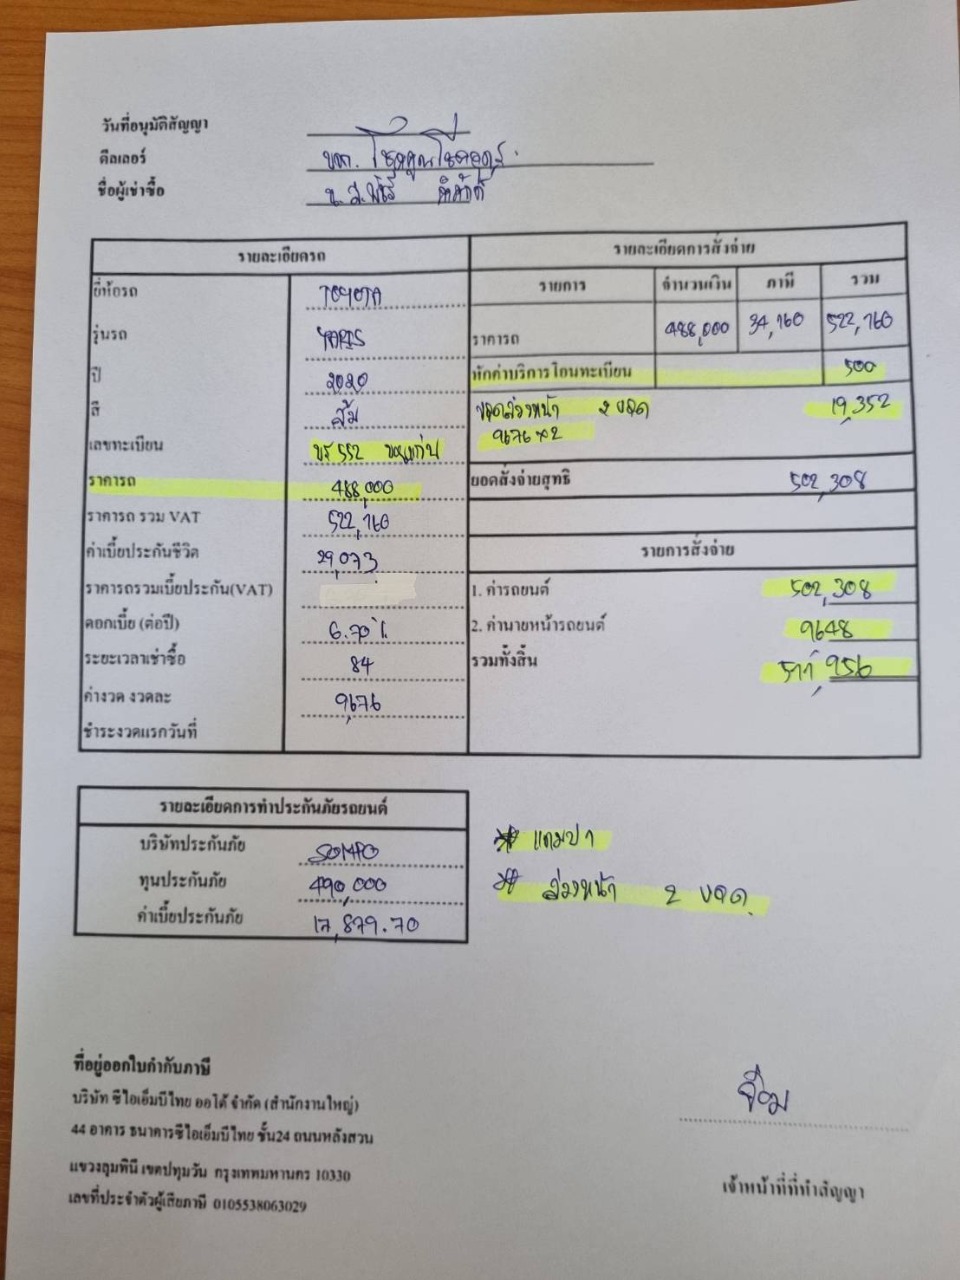 วันที่อนุมัติสัญญา
ดีลเลอร์ หจก. โชคคูณโชคออโต้
ชื่อผู้เช่าซื้อ น.ส.
รายละเอียดรถ
ยี่ห้อรถ TOYOTA
รุ่นรถ YARIS
ปี 2020
สี ส้ม
เลขทะเบียน 552 ขอนแก่น
ราคารถ 488,000
ราคารถ รวม VAT 522,160
ค่าเบี้ยประกันชีวิต 29,073
ราคารถรวมเบี้ยประกัน(VAT)
ดอกเบี้ย (ต่อปี) 6.70%
ระยะเวลาเช่าซื้อ 84
ค่างวด งวดละ 9,676
ชำระงวดแรกวันที่
รายละเอียดการสั่งจ่าย
รายการ จำนวนเงิน ภาษี รวม
ราคารถ 488,000 34,160 522,160
หักค่าบริการโอนทะเบียน 500
งวดล่วงหน้า 2 งวด 19,352
9676 x 2
ยอดสั่งจ่ายสุทธิ 502,308
รายการสั่งจ่าย
1. ค่ารถยนต์ 502,308
2. ค่านายหน้ารถยนต์ 9648
รวมทั้งสิ้น 511,956
รายละเอียดการทำประกันภัยรถยนต์
บริษัทประกันภัย SOMPO
ทุนประกันภัย 490,000
ค่าเบี้ยประกันภัย 17,879.70
* แถมป1
* ล่วงหน้า 2 งวด
ที่อยู่ออกใบกำกับภาษี
บริษัท ซีไอเอ็มบีไทย ออโต้ จำกัด (สำนักงานใหญ่)
44 อาคาร ธนาคารซีไอเอ็มบีไทย ชั้น24 ถนนหลังสวน
แขวงลุมพินี เขตปทุมวัน กรุงเทพมหานคร 10330
เลขที่ประจำตัวผู้เสียภาษี 0105538063029
เจ้าหน้าที่ที่ทำสัญญา